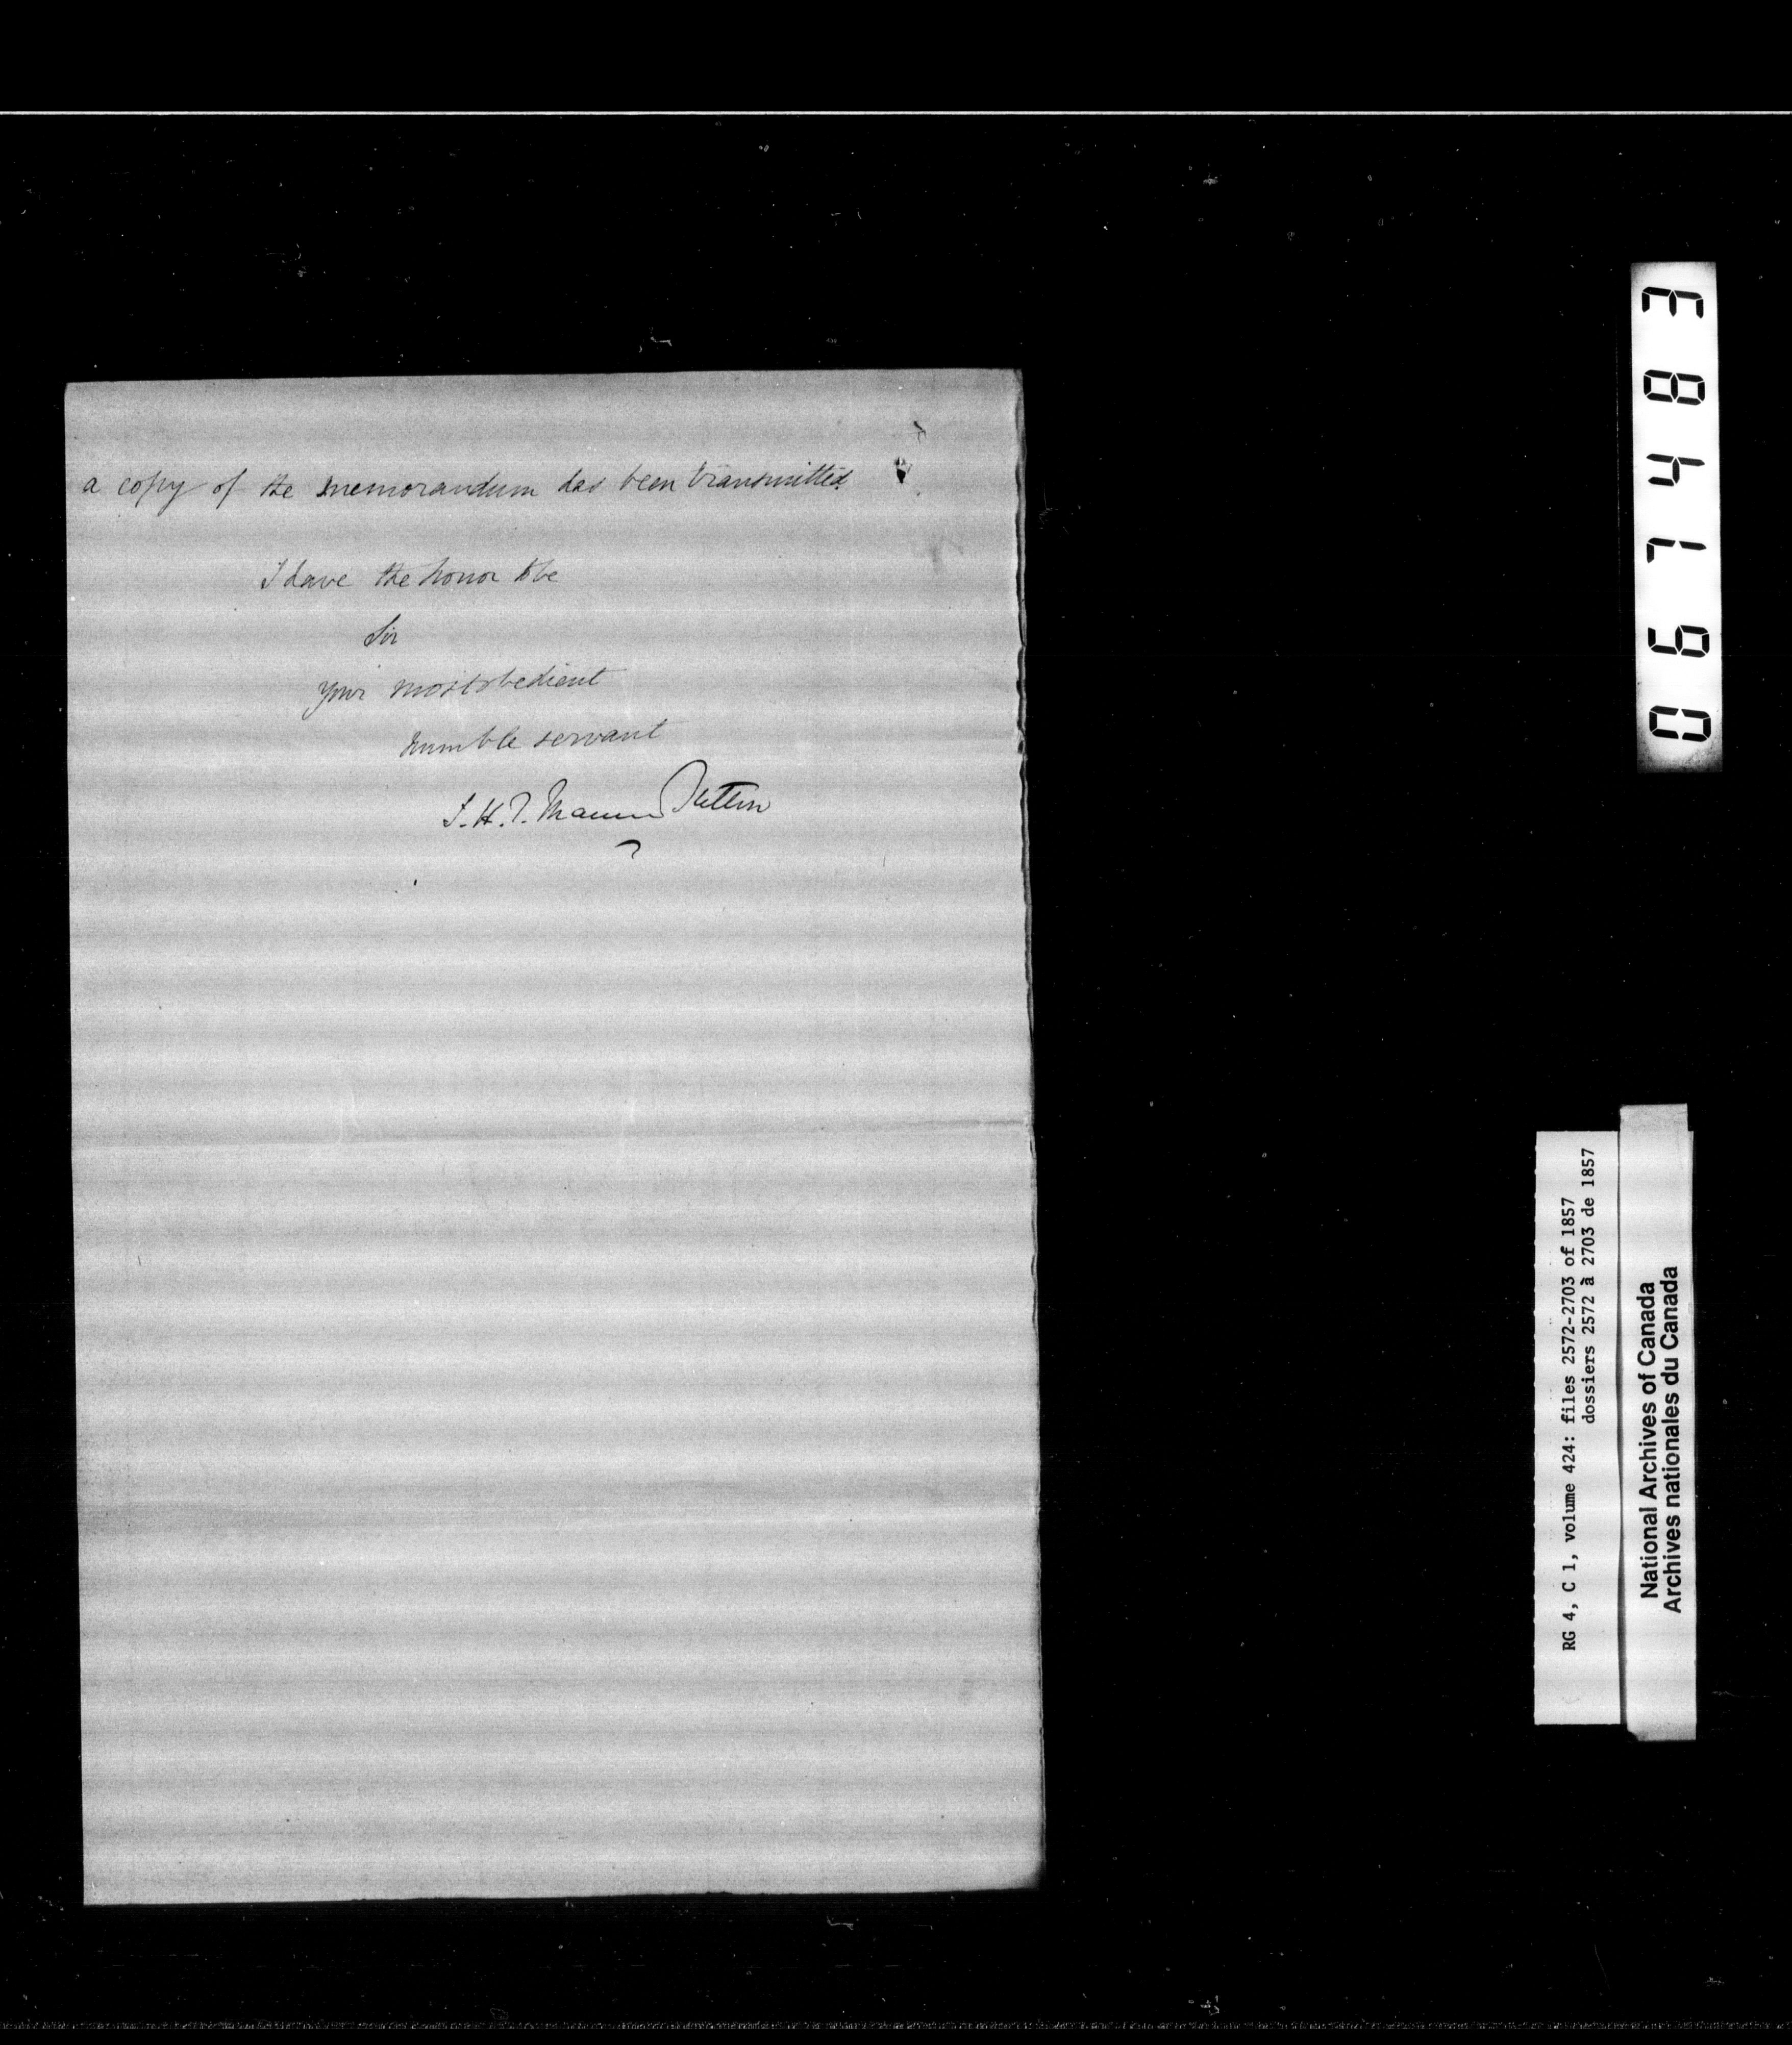 a copy of the memorandum has been transmitted.
I have the honor to be
Sir
Your most obedient
humble servant
J. H. T. Manners Sutton
067483
RG 4, C 1, volume 424: files 2572-2703 of 1857
dossiers 2572 à 2703 de 1857
National Archives of Canada
Archives nationales du Canada